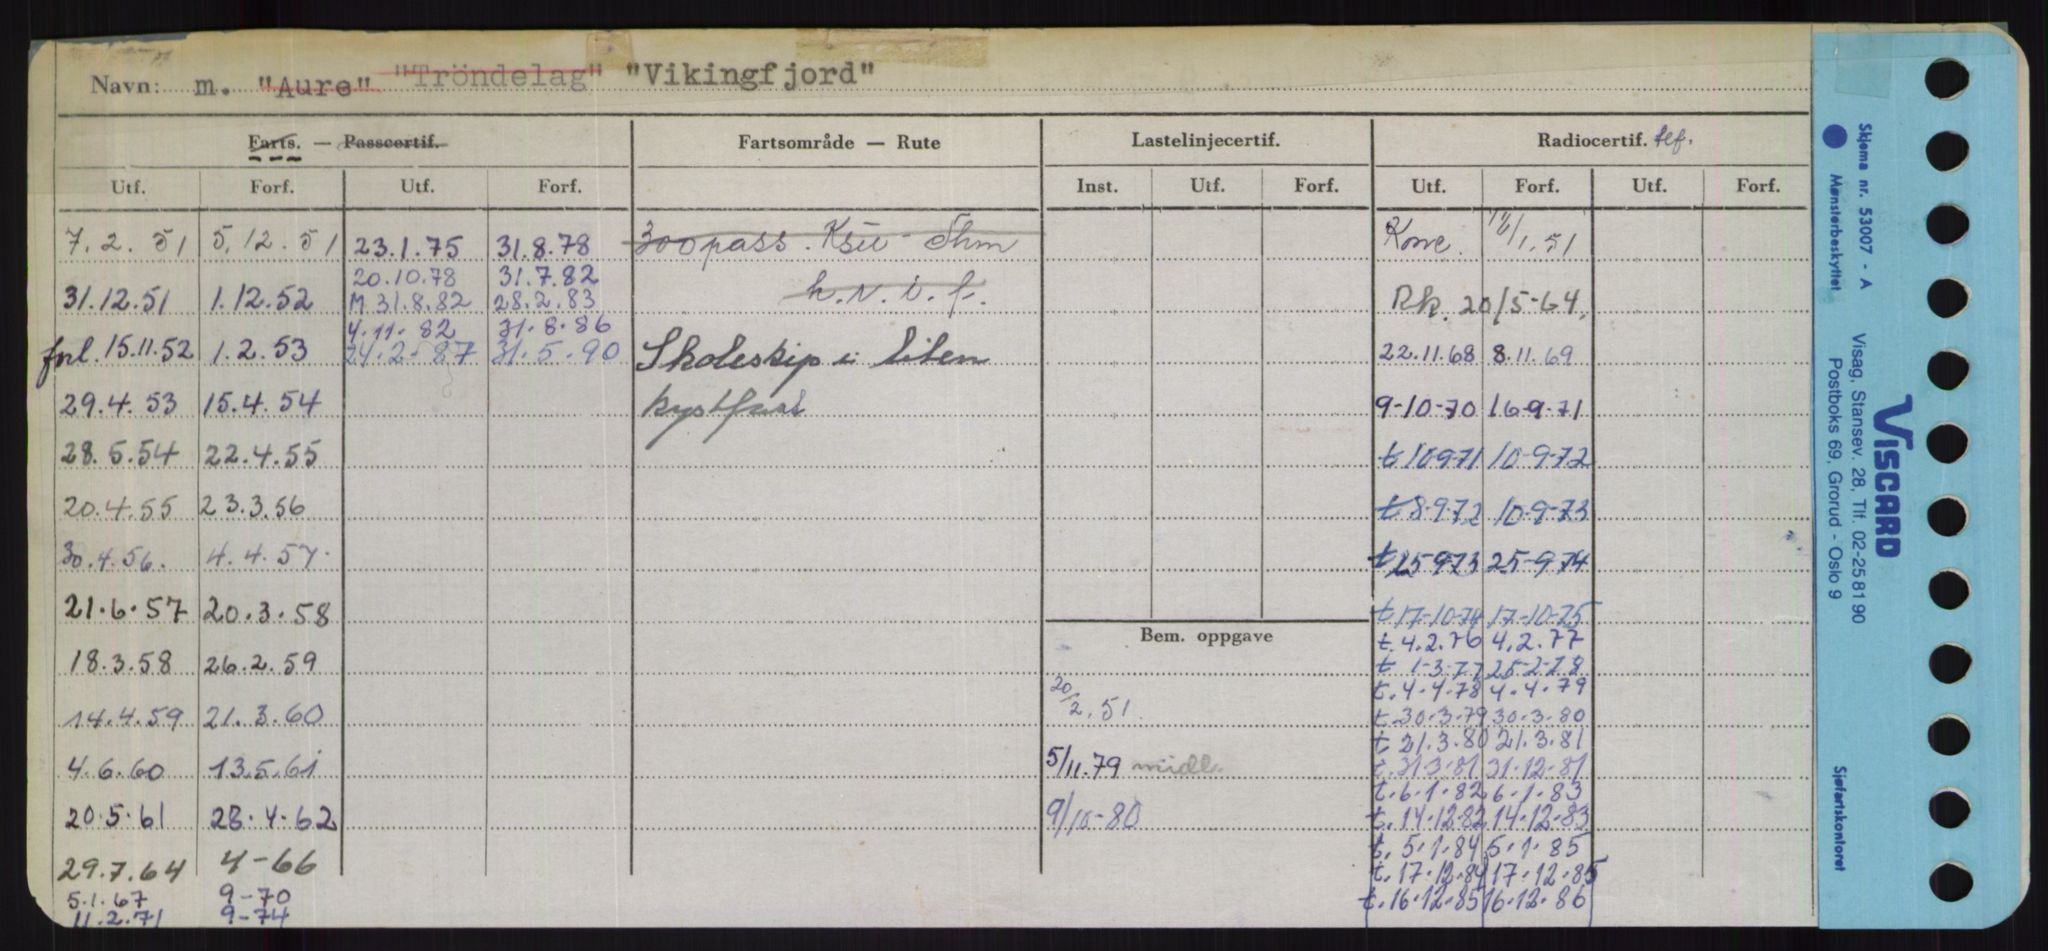 Navn: m. "Aure" "Tröndelag" "Vikingfjord"
Farts. — Passcertif. Fartsområde — Rute Lastelinjecertif. Radiocertif. tlf.
Utf. Forf. Utf. Forf. Inst. Utf. Forf. Utf. Forf. Utf. Forf.
7.2.51 5.12.51 23.1.75 31.8.78 300 pass. Ksu - Thm 12/1.51
20.10.78 31.7.82
31.12.51 1.12.52 M 31.8.82 28.2.83 h.v.i.f. Rk. 20/5-64.
4.11.82 31.8.86
forl. 15.11.52 1.2.53 24.2-87 31.5.90 Skoleskip i liten 22.11.68 8.11.69
29.4.53 15.4.54 kystfart 9-10-70 16-9-71
28.5.54 22.4.55 t 10-9-71 10-9-72
20.4.55 23.3.56 t 8-9-72 10-9-73
30.4.56. 4.4.57. t 25-9-73 25-9-74
21.6.57 20.3.58 t 17-10-74 17-10-75
Bem. oppgave t. 4.2.76 4.2.77
18.3.58 26.2.59 t 1-3-77 25-2-78
20/2.51 t. 4.4.78 4.4.79
14.4.59 21.3.60 t. 30.3.79 30.3.80
t. 21.3.80 21.3.81
4.6.60 13.5.61 5/11.79 midl. t. 31.3.81 31.12.81
t. 6.1.82 6.1.83
20.5.61 28.4-62 9/10-80 t. 14.12.82 14.12.83
t. 5.1.84 5.1.85
29.7.64 4-66 t. 17.12.84 17.12.85
5.1.67 9-70 t. 16.12.85 16.12.86
11.2.71 9-74
Skjema nr. 53007 - A
Mønsterbeskyttet
Visag, Stansev. 28, Tlf. 02-25 81 90
Postboks 69, Grorud - Oslo 9
VISCARD
Sjøfartskontoret